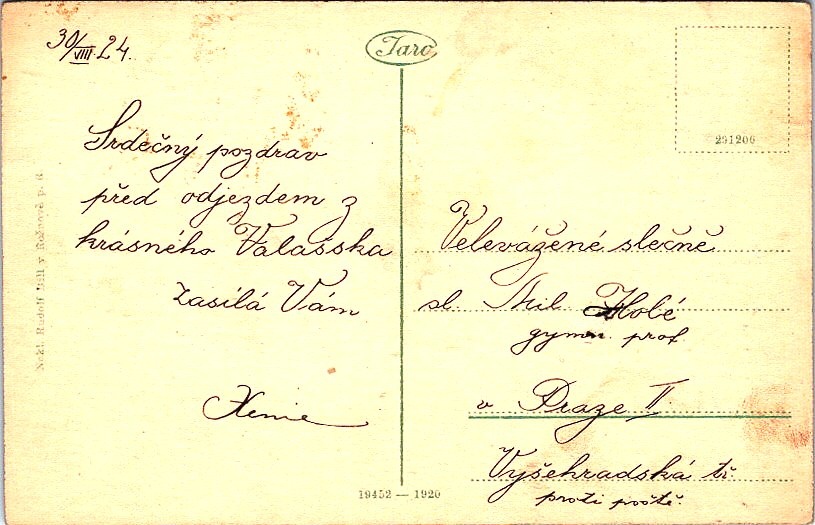 30/VIII. 24.
Taro
291206
Srdečný pozdrav
před odjezdem z
krásného Valašska
zasílá Vám
Xenie
Velevážené slečně
sl. Mil. Holé
gymn. prof.
v Praze II
Vyšehradská tř.
proti poště.
19452 — 1920
Nakl. Rudolf Jall v Rožnově p. R.